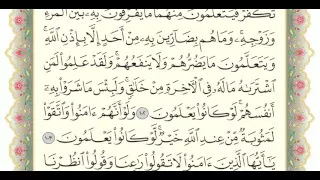 تَكْفُرْ فَيَتَعَلَّمُونَ مِنْهُمَا مَا يُفَرِّقُونَ بِهِۦ بَيْنَ ٱلْمَرْءِ
وَزَوْجِهِۦۚ وَمَا هُم بِضَآرِّينَ بِهِۦ مِنْ أَحَدٍ إِلَّا بِإِذْنِ ٱللَّهِۚ
وَيَتَعَلَّمُونَ مَا يَضُرُّهُمْ وَلَا يَنفَعُهُمْۚ وَلَقَدْ عَلِمُوا۟ لَمَنِ
ٱشْتَرَىٰهُ مَا لَهُۥ فِى ٱلْـَٔاخِرَةِ مِنْ خَلَـٰقٍۚ وَلَبِئْسَ مَا شَرَوْا۟ بِهِۦٓ
أَنفُسَهُمْۚ لَوْ كَانُوا۟ يَعْلَمُونَ ١٠٢ وَلَوْ أَنَّهُمْ ءَامَنُوا۟ وَٱتَّقَوْا۟
لَمَثُوبَةٌ مِّنْ عِندِ ٱللَّهِ خَيْرٌۖ لَّوْ كَانُوا۟ يَعْلَمُونَ ١٠٣
يَـٰٓأَيُّهَا ٱلَّذِينَ ءَامَنُوا۟ لَا تَقُولُوا۟ رَٰعِنَا وَقُولُوا۟ ٱنظُرْنَا